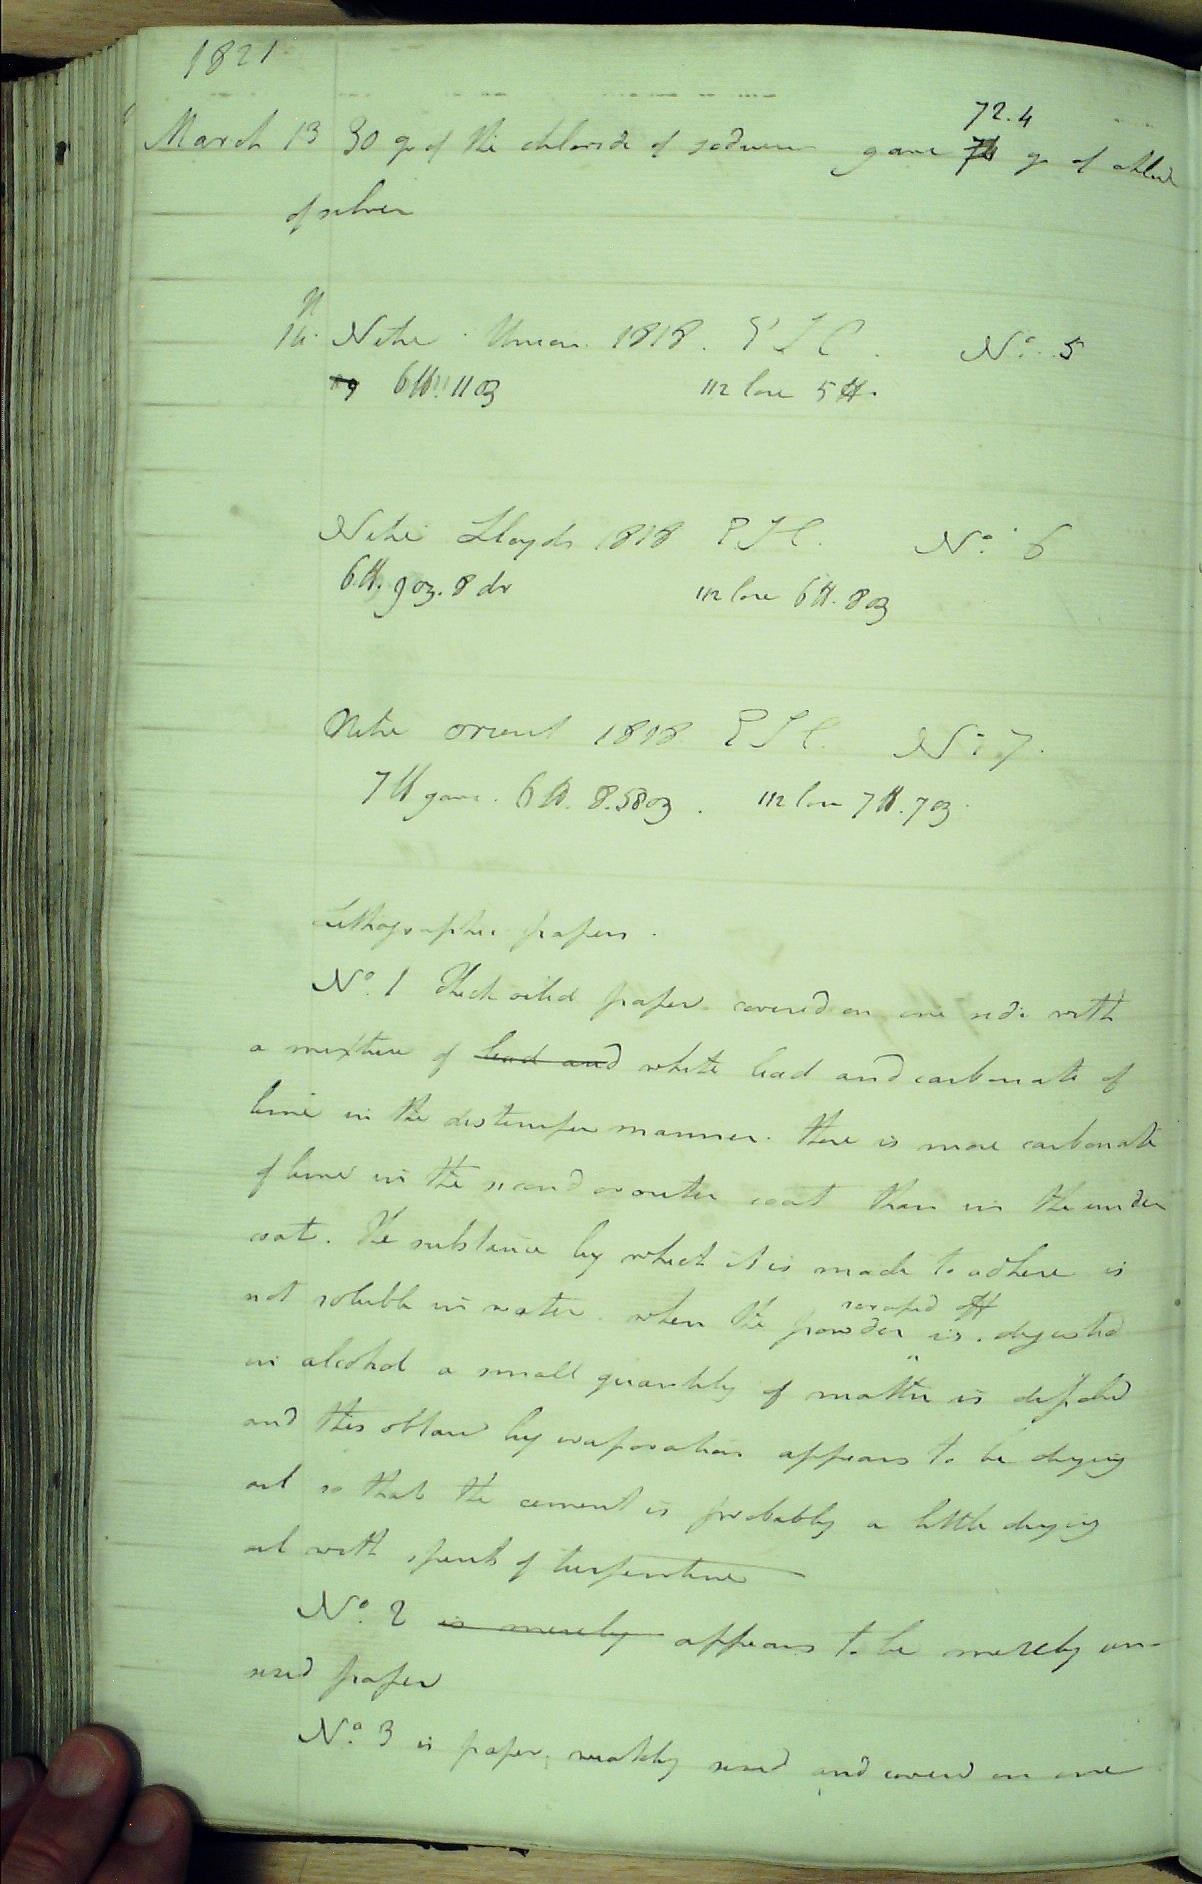 1821
72.4
March 13 30 gr of the chloride of sodium gave gr of chlod
of silver
14. Nitre Union 1818. E I C. No. 5
6 lb. 11 oz 112 lose 5 lb.
Nitre Lloyds 1818 E I C. No. 6
6 lb. 9 oz. 8 dr 112 lose 6 lb. 8 oz
Nitre Orient 1818 E I C. No. 7.
7 lb gave. 6 lb. 8.58 oz. 112 lose 7 lb. 7 oz.
Lithographic papers.
No. 1 Thick oiled paper covered on one side with
a mixture of lead and white lead and carbonate of
lime in the distemper manner. there is more carbonate
of lime in the second or outer coat than in the under
coat. The substance by which it is made to adhere is
scraped off
not soluble in water. when the powder is digested
in alcohol a small quantity of matter is dissolved
and this obtand by evaporation appears to be drying
oil so that the cement is probably a little drying
oil with spirits of turpentine
No. 2 is merely appears to be merely un-
sized paper
No. 3 is paper weakly sized and covered on one